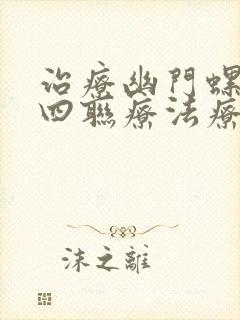 治療幽門螺
四聯療法療
沫之離